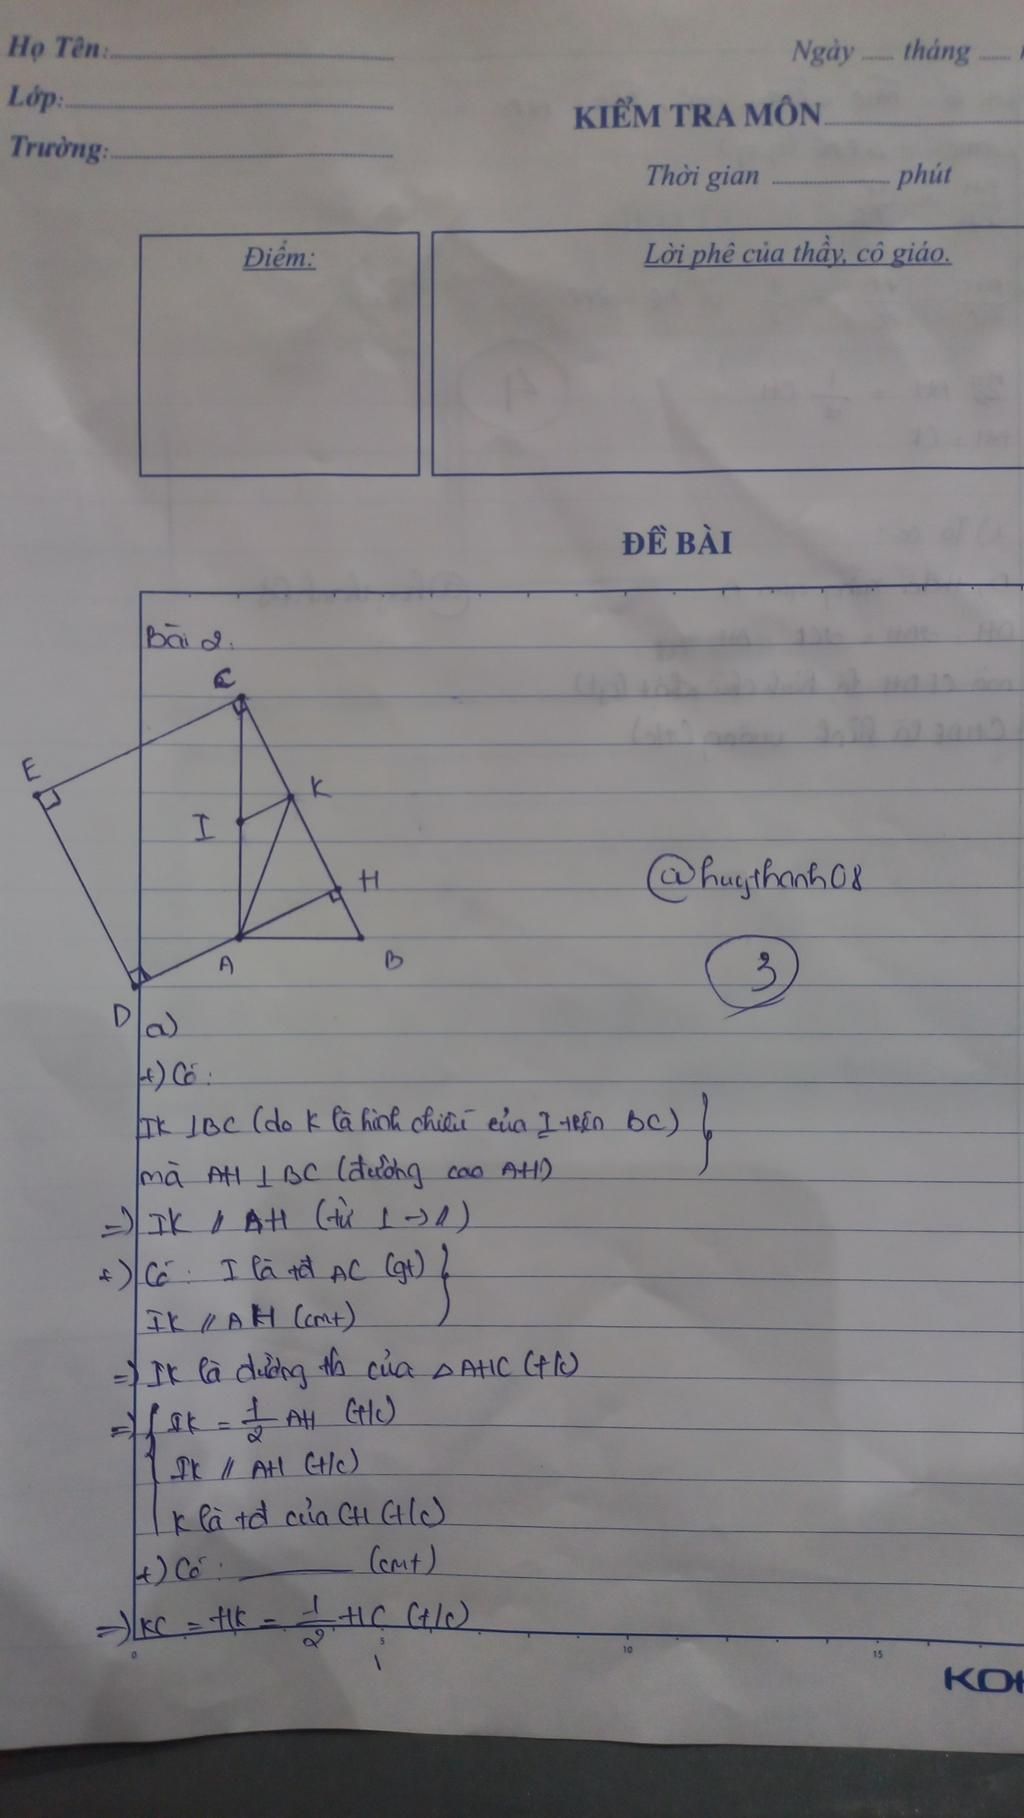 Họ Tên:
Ngày tháng
Lớp:
KIỂM TRA MÔN
Trường:
Thời gian phút
Điểm:
Lời phê của thầy, cô giáo.
ĐỀ BÀI
Bài 2.
C
E
K
I
H
@huythanh08
A
B
3
D
a)
+) Có:
IK ⊥ BC (do K là hình chiếu của I trên BC)
mà AH ⊥ BC (đường cao AH)
=> IK // AH (từ ⊥ -> //)
+) Có: I là tđ AC (gt)
IK // AH (cmt)
=> IK là đường tb của △AHC (t/c)
=> IK = 1/2 AH (t/c)
IK // AH (t/c)
K là tđ của CH (t/c)
+) Có: (cmt)
=> KC = HK = 1/2 HC (t/c)
0 5 10 15
1